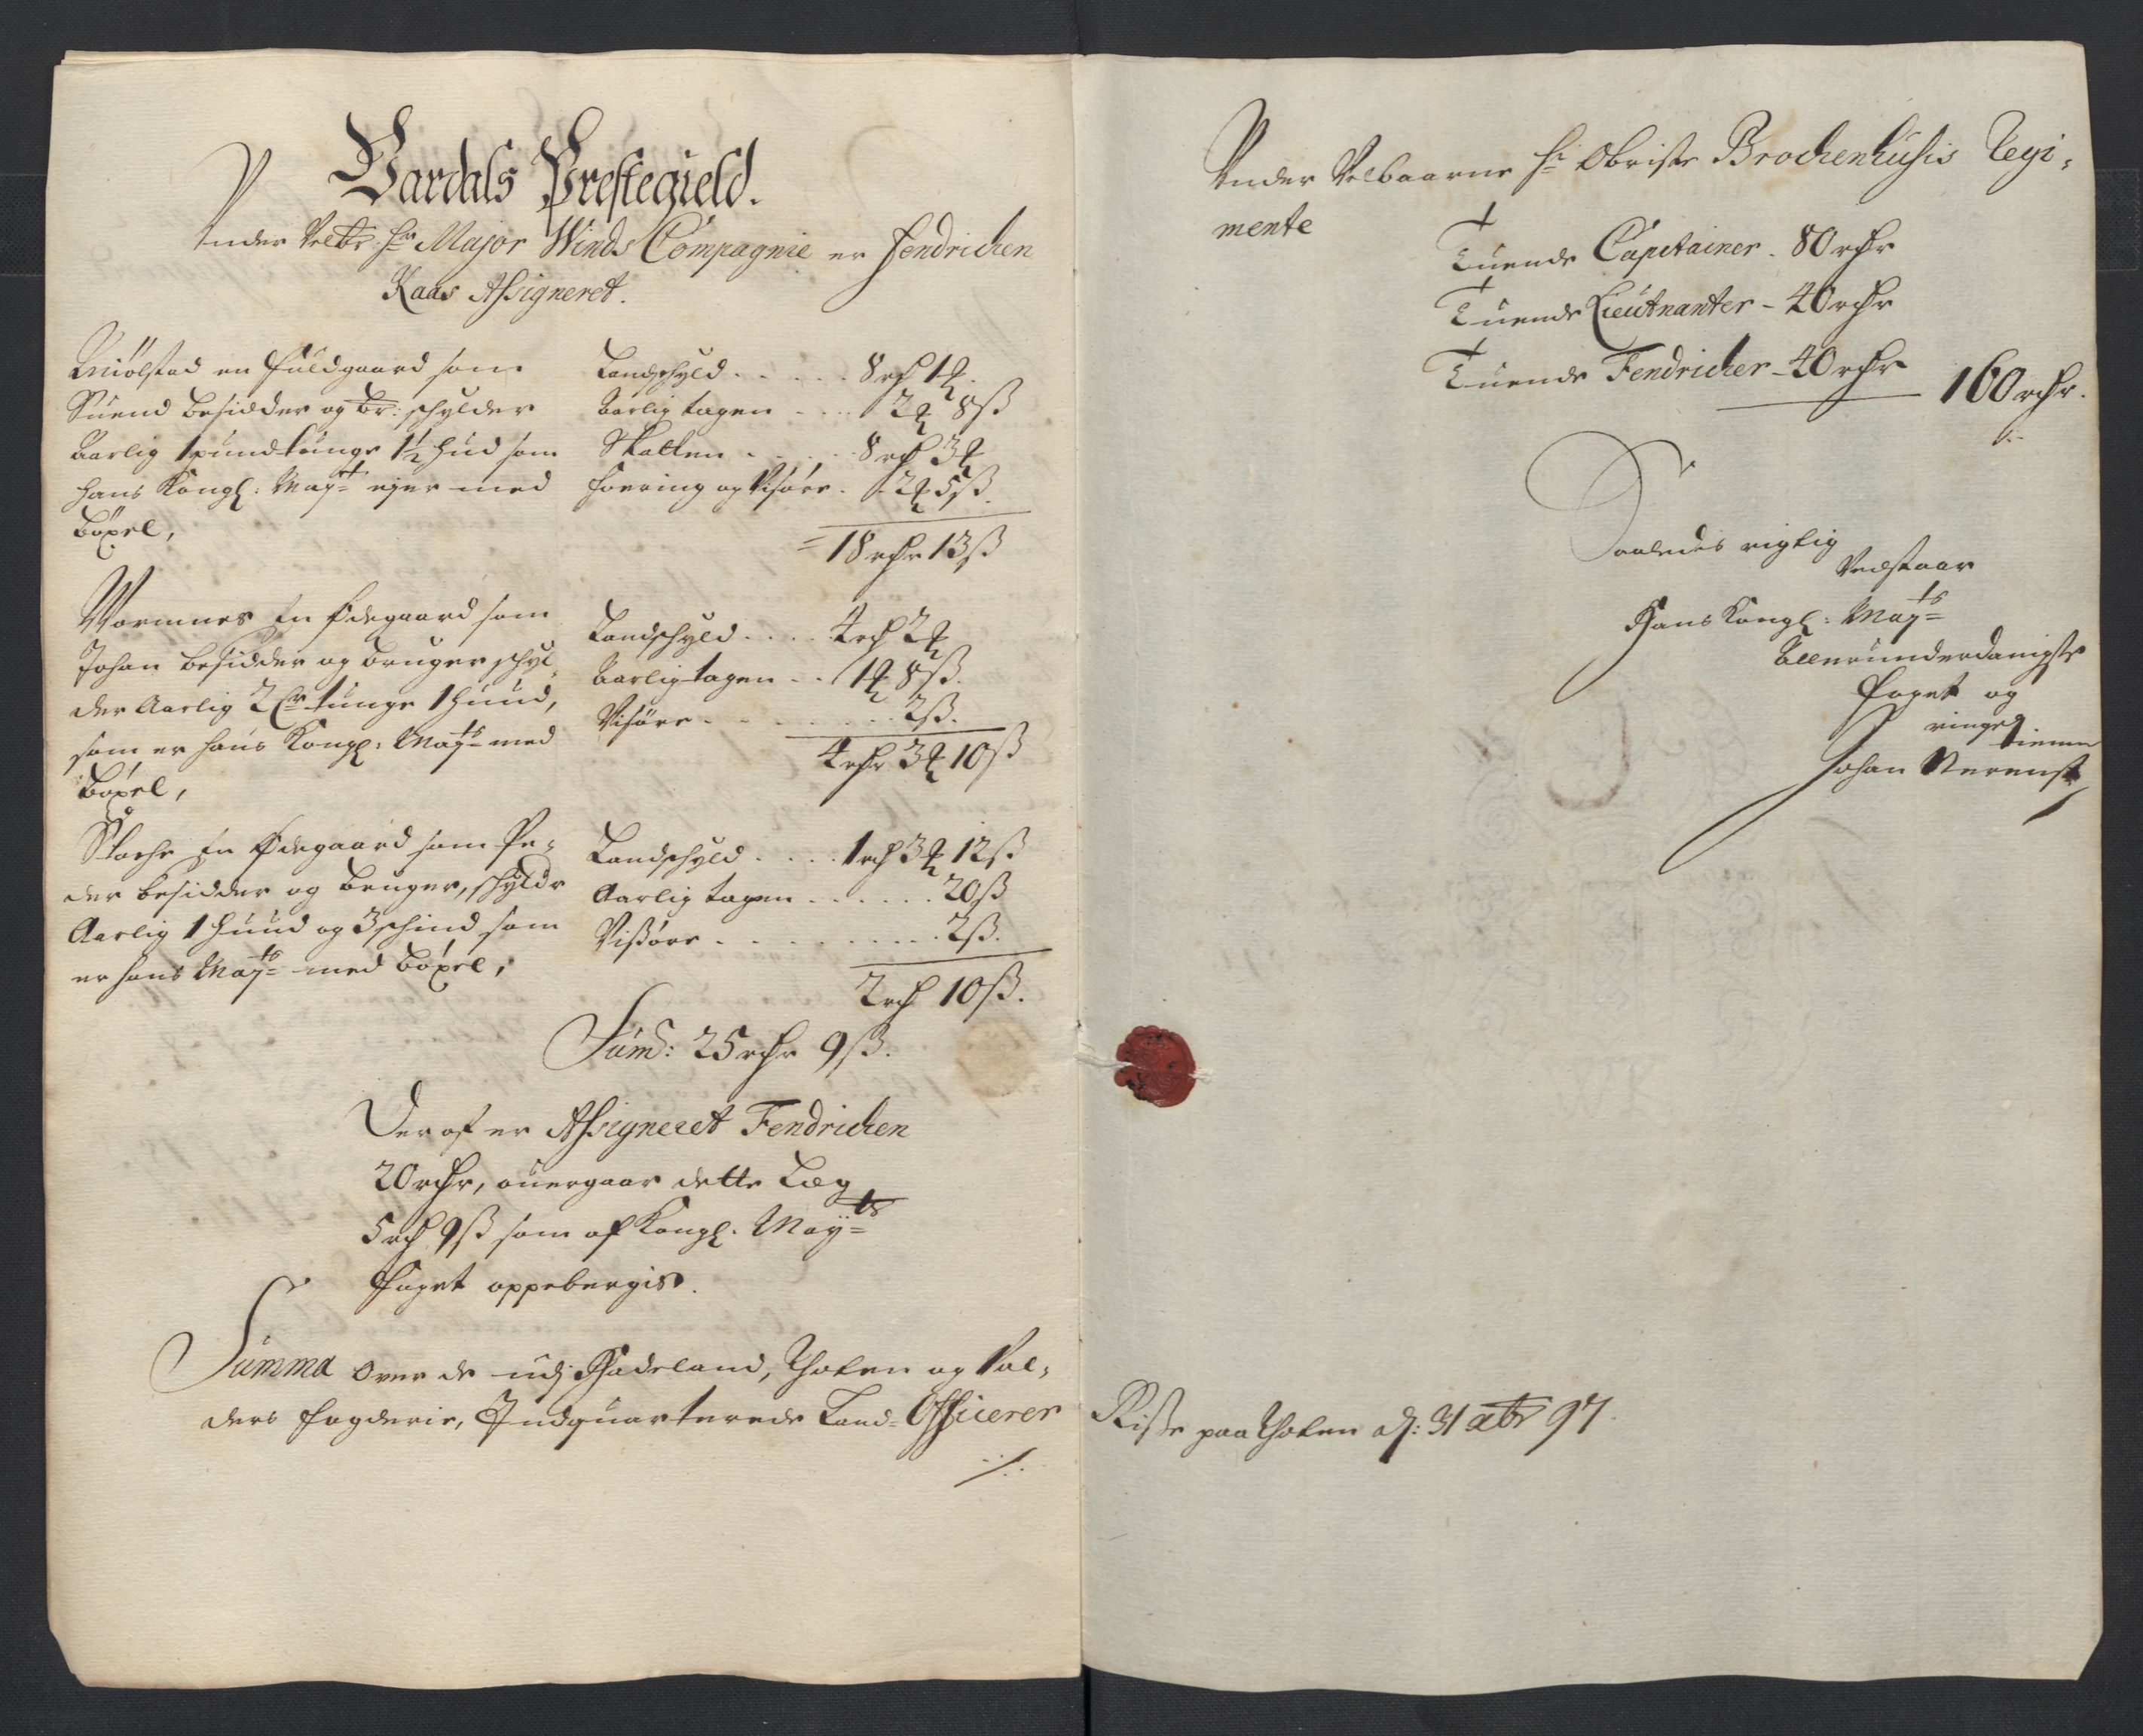 Vardals Prestegield.
Under Velbr: Hr Major Winds Compagnie er Fendrichen
Kaas Assigneret.
Miølstad en fuldgaard som
Suend besidder og br: schylder
Aarlig 1 pund tunge 1½ hud som
hans Kongl: Mayt ejer med
böxel,
Landschyld . . . . . 8 rd 1 ort
Aarlig tagen . . . 2 ort 8 ß
Skatten . . . . . 8 rd 3 ort
foering og Visöre . - 2 ort 5 ß
18 rdr 13 ß
Wormnes En Ødegaard som
Johan besidder og bruger schyl-
der Aarlig 2 tunge 1 huud,
som er hans Kongl: Mayts med
böxel,
Landschyld . . . . 4 rd 2 ort
Aarlig tagen . . 1 ort 8 ß.
Visöre . . . . . . . 2 ß.
4 rdr 3 ort 10 ß
En Ødegaard som Pe-
der besidder og bruger, schyldr
Aarlig 1 huud og 3 schind som
er hans Mayts med böxel,
Landschyld . . . . 1 rd 3 ort 12 ß
Aarlig tagen . . . . . . 20 ß
Vissöre . . . . . . . . . 2 ß.
2 rd 10 ß.
Sum: 25 rdr 9 ß.
Der af er Assigneret Fendrichen
20 rdr, ouergaar dette Læg
5 rd 9 ß som af Kongl. Mayts
foget oppebergis.
Summa Over de udj Hadeland, Thoten og Val-
ders fogderie, Indquarterede Land-Officerer
./.
Under Velbaarne Hr Obriste Brochenhusis Regi-
mente
Tuende Capitainer . 80 rdr
Tuende Lieutnanter - 40 rdr
Tuende Fendricher - 40 rdr
160 rdr.
Saaledis rigtig
Vedstaar
Hans Kongl: Mayts
Allerunderdanigste
foget og
ringe
tienner
Johan
Riste paa Thoten d: 31 xbr 97.